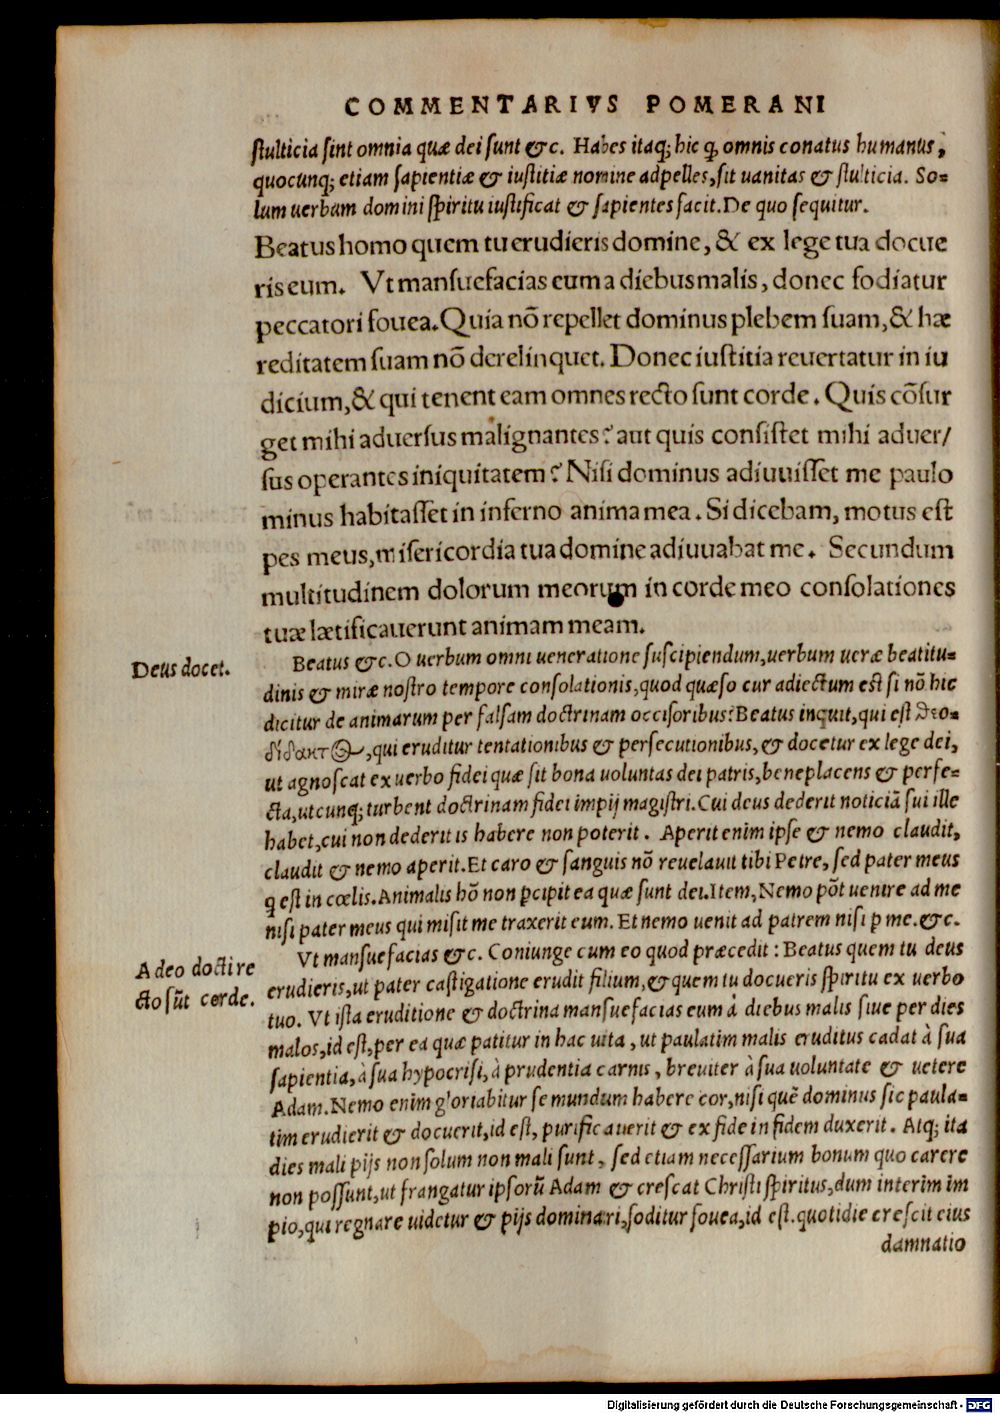 COMMENTARIVS POMERANI
ſtulticia ſint omnia quæ dei ſunt &c. Habes itaq; hic ꝙ omnis conatus humanus,
quocunq; etiam ſapientiæ & iuſtitiæ nomine adpelles, ſit uanitas & ſtulticia. So=
lum uerbum domini ſpiritu iuſtificat & ſapientes facit. De quo ſequitur.
Beatus homo quem tu erudieris domine, & ex lege tua docue
ris eum. Vt manſuefacias eum a diebus malis, donec fodiatur
peccatori fouea. Quia nō repellet dominus plebem ſuam, & hæ
reditatem ſuam nō derelinquet. Donec iuſtitia reuertatur in iu
dicium, & qui tenent eam omnes recto ſunt corde. Quis cōſur
get mihi aduerſus malignantes? aut quis conſiſtet mihi aduer/
ſus operantes iniquitatem? Niſi dominus adiuuiſſet me paulo
minus habitaſſet in inferno anima mea. Si dicebam, motus eſt
pes meus, miſericordia tua domine adiuuabat me. Secundum
multitudinem dolorum meorum in corde meo conſolationes
tuæ lætificauerunt animam meam.
Deus docet.
Beatus &c. O uerbum omni ueneratione ſuſcipiendum, uerbum ueræ beatitu=
dinis & miræ noſtro tempore conſolationis, quod quæſo cur adiectum eſt ſi nō hic
dicitur de animarum per falſam doctrinam occiſoribus? Beatus inquit, qui eſt θεο=
δίδακτος, qui eruditur tentationibus & perſecutionibus, & docetur ex lege dei,
ut agnoſcat ex uerbo fidei quæ ſit bona uoluntas dei patris, beneplacens & perfe=
cta, utcunq; turbent doctrinam fidei impij magiſtri. Cui deus dederit noticiā ſui ille
habet, cui non dederit is habere non poterit. Aperit enim ipſe & nemo claudit,
claudit & nemo aperit. Et caro & ſanguis nō reuelauit tibi Petre, ſed pater meus
q eſt in cœlis. Animalis hō non ꝑcipit ea quæ ſunt dei. Item, Nemo pōt uenire ad me
niſi pater meus qui miſit me traxerit eum. Et nemo uenit ad patrem niſi ꝑ me. &c.
Adeo docti re
cto ſūt corde.
Vt manſuefacias &c. Coniunge cum eo quod præcedit: Beatus quem tu deus
erudieris, ut pater caſtigatione erudit filium, & quem tu docueris ſpiritu ex uerbo
tuo. Vt iſta eruditione & doctrina manſuefacias eum à diebus malis ſiue per dies
malos, id eſt, per ea quæ patitur in hac uita, ut paulatim malis eruditus cadat à ſua
ſapientia, à ſua hypocriſi, à prudentia carnis, breuiter à ſua uoluntate & uetere
Adam. Nemo enim gloriabitur ſe mundum habere cor, niſi quē dominus ſic paula=
tim erudierit & docuerit, id eſt, purificauerit & ex fide in fidem duxerit. Atq; ita
dies mali pijs non ſolum non mali ſunt, ſed etiam neceſſarium bonum quo carere
non poſſunt, ut frangatur ipſorū Adam & creſcat Chriſti ſpiritus, dum interim im
pio, qui regnare uidetur & pijs dominari, foditur fouea, id eſt. quotidie creſcit eius
damnatio
Digitalisierung gefördert durch die Deutsche Forschungsgemeinschaft - DFG